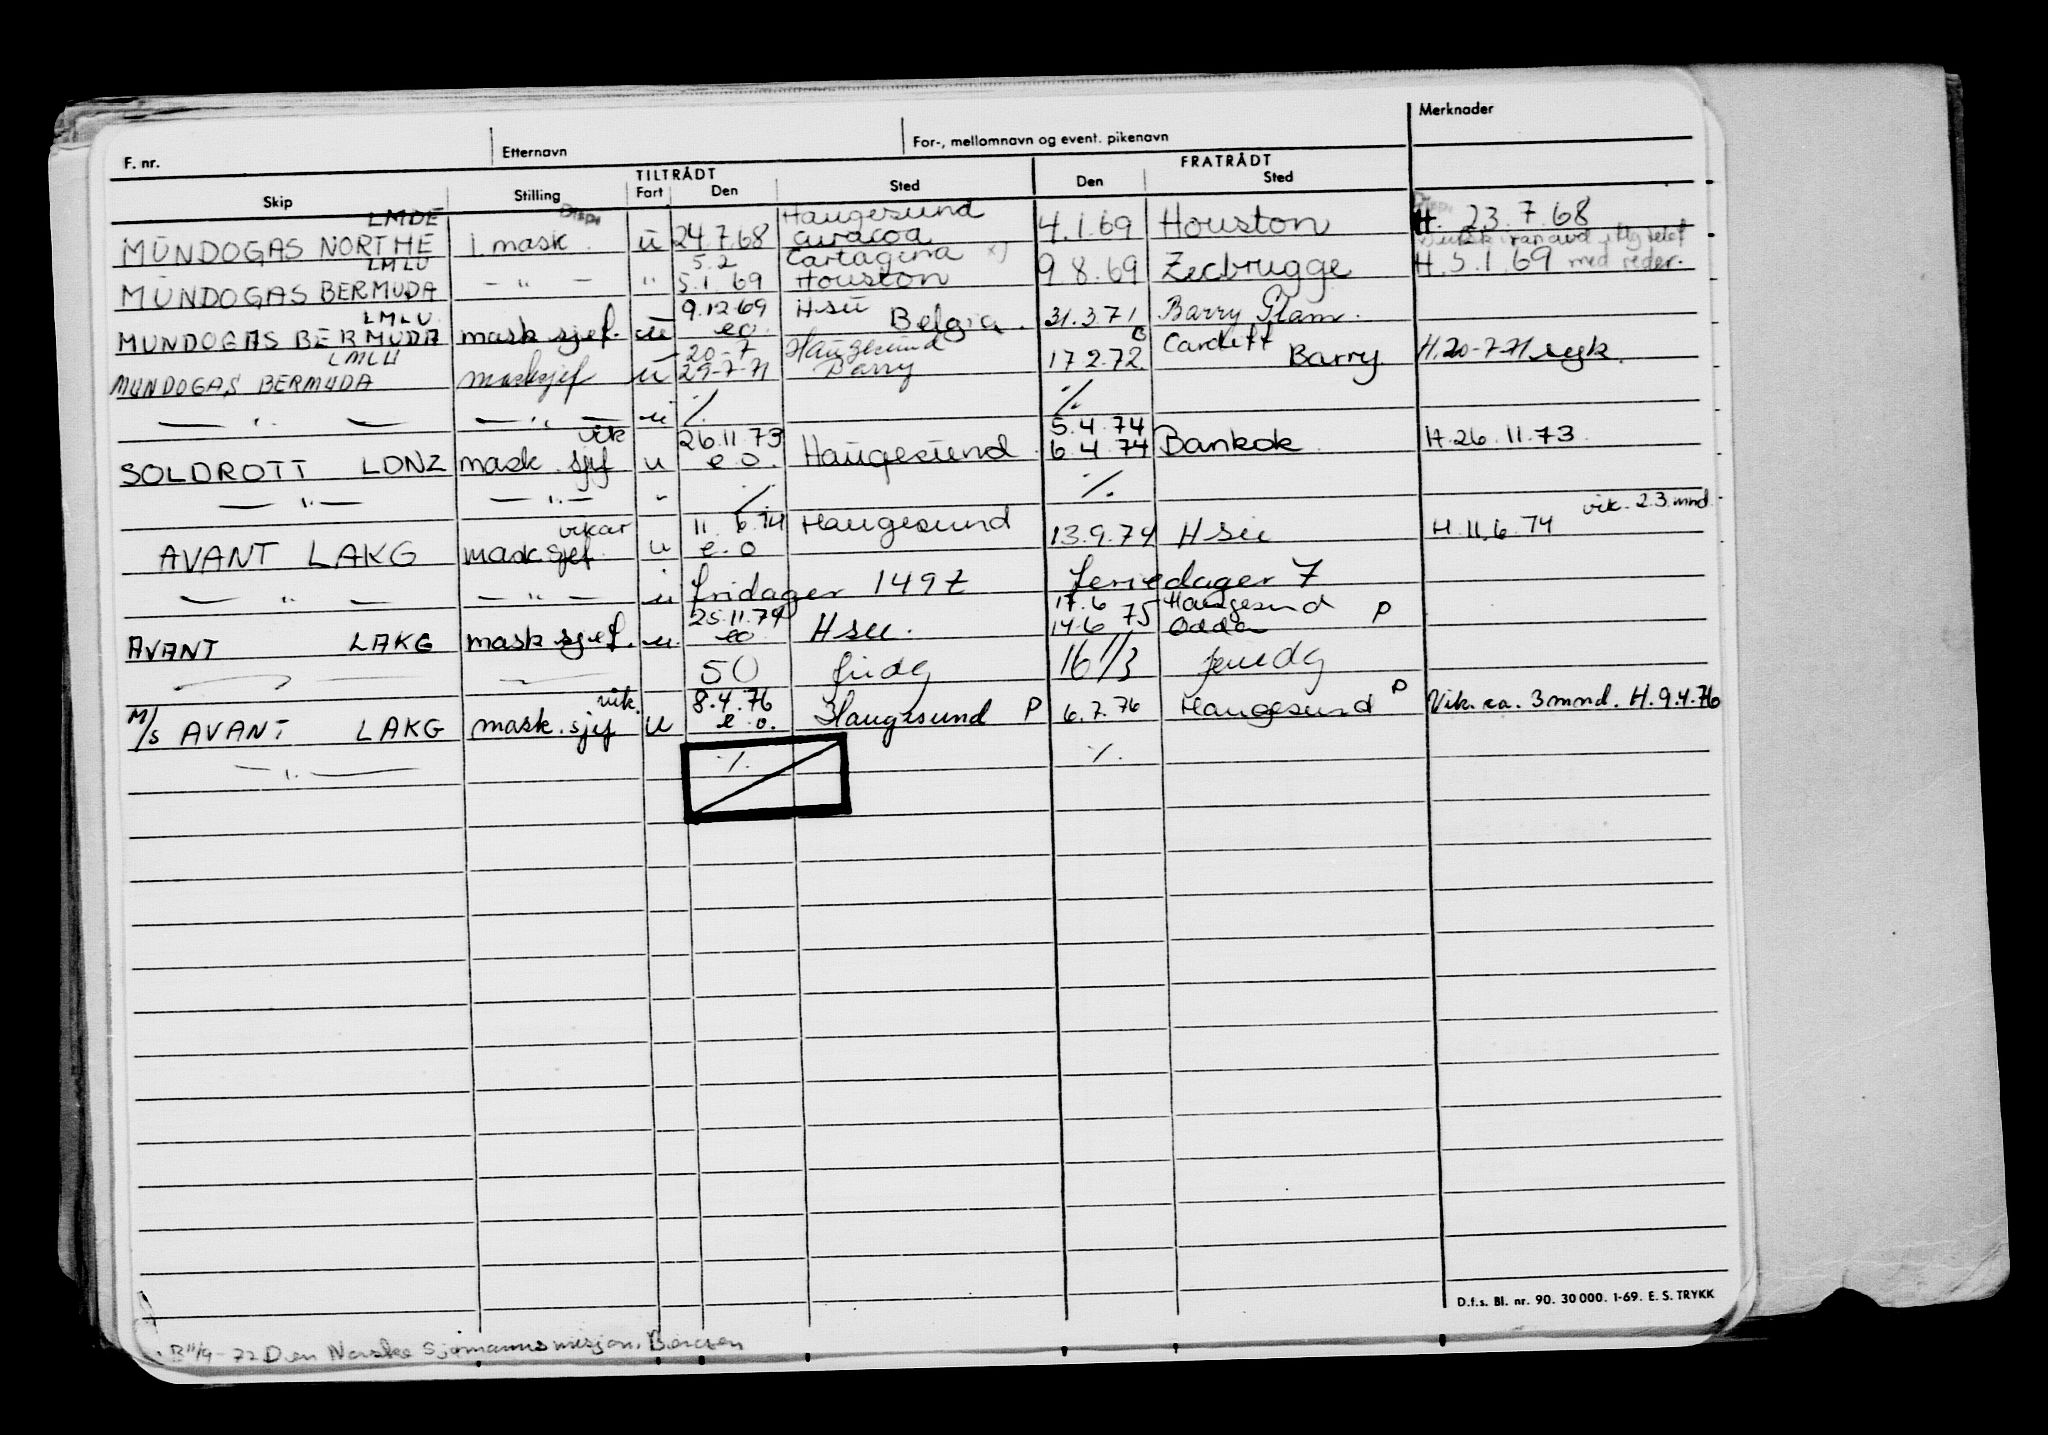 Merknader
F. nr. Etternavn For-, mellomnavn og event. pikenavn
TILTRÅDT FRATRÅDT
Skip Stilling Fart Den Sted Den Sted
LMDE Disp. Haugesund
MUNDOGAS NORTHE 1. mask. u 24.7.68 Curacoa 4.1.69 Houston H. 23.7.68
LMLU 5.2 Cartagena x)
MUNDOGAS BERMUDA - " - " 5.1.69 Houston 9.8.69 Zeebrugge H. 5.1.69 med reder.
LMLU 9.12.69 Hsu
MUNDOGAS BERMUDA mask sjef. u eo. Belgia. 31.3.71 Barry
LMLU 20-7 Haugesund Cardiff
MUNDOGAS BERMUDA masksjef u 29-7-71 Barry 17 2.72. Barry H. 20-7-71 syk.
— " — — " — u % %
vik 26.11.73 5.4.74
SOLDROTT LDNZ mask. sjef u e.o. Haugesund 6.4.74 Bankok H. 26.11.73.
— " — — " — " % %
vik. 2.3. mnd.
vikar 11.6.74 Haugesund
AVANT LAKG mask sjef. u e.o 13.9.74 Hsu H. 11.6.74
— " — — " — u fridager 149 feriedager 7
25.11.74 17.6 Haugesund
AVANT LAKG mask sjef. u. eo Hsu. 14.6 75 Odda P
50 fridg 16 1/3 feriedg
vik. 8.4.76
M/s AVANT LAKG mask. sjef u e.o. Haugesund P 6.7.76 Haugesund P Vik. ca. 3 mnd. H. 9.4.76
— " — % %
D.f.s. Bl. nr. 90. 30 000. 1-69. E. S. TRYKK
B 11/9-72 Den Norske Sjømannsmisjon, Bergen